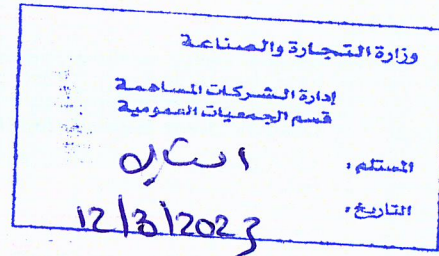 وزارة التجارة والصناعة
إدارة الشركات المساهمة
قسم الجمعيات العمومية
المستلم :
التاريخ : 12/3/2023